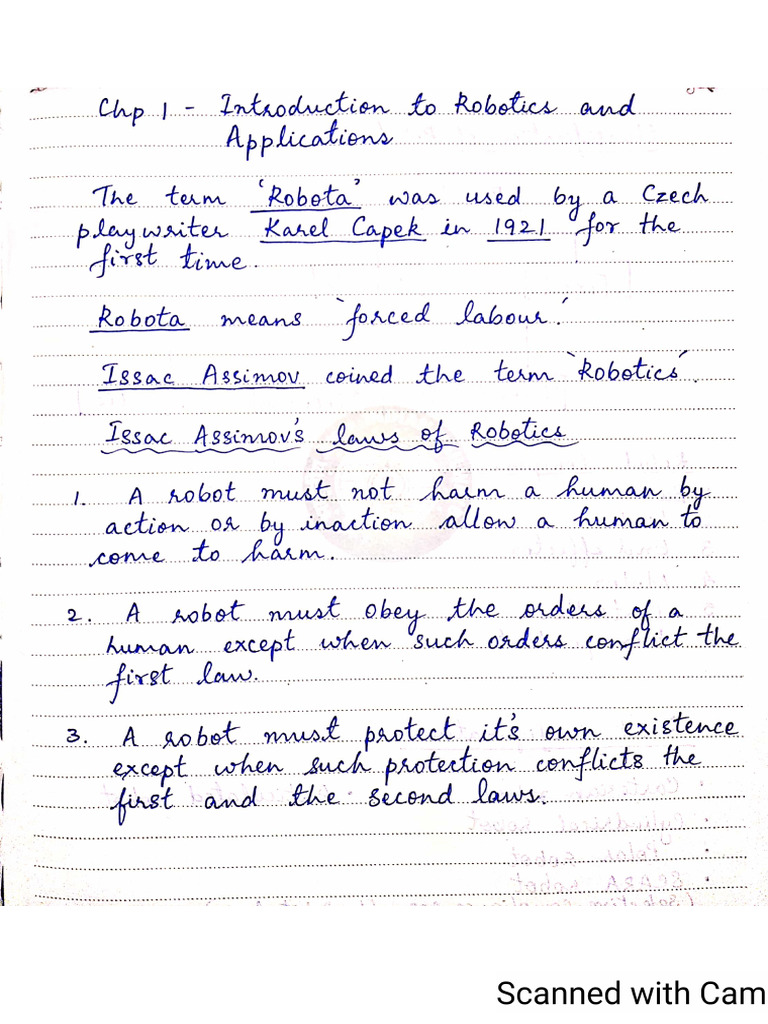 Chp 1 - Introduction to Robotics and
Applications
The term 'Robota' was used by a Czech
playwriter Karel Capek in 1921 for the
first time.
Robota means 'forced labour.'
Issac Assimov coined the term 'Robotics'.
Issac Assimov's laws of Robotics
1. A robot must not harm a human by
action or by inaction allow a human to
come to harm.
2. A robot must obey the orders of a
human except when such orders conflict the
first law.
3. A robot must protect it's own existence
except when such protection conflicts the
first and the second laws.
Scanned with Cam